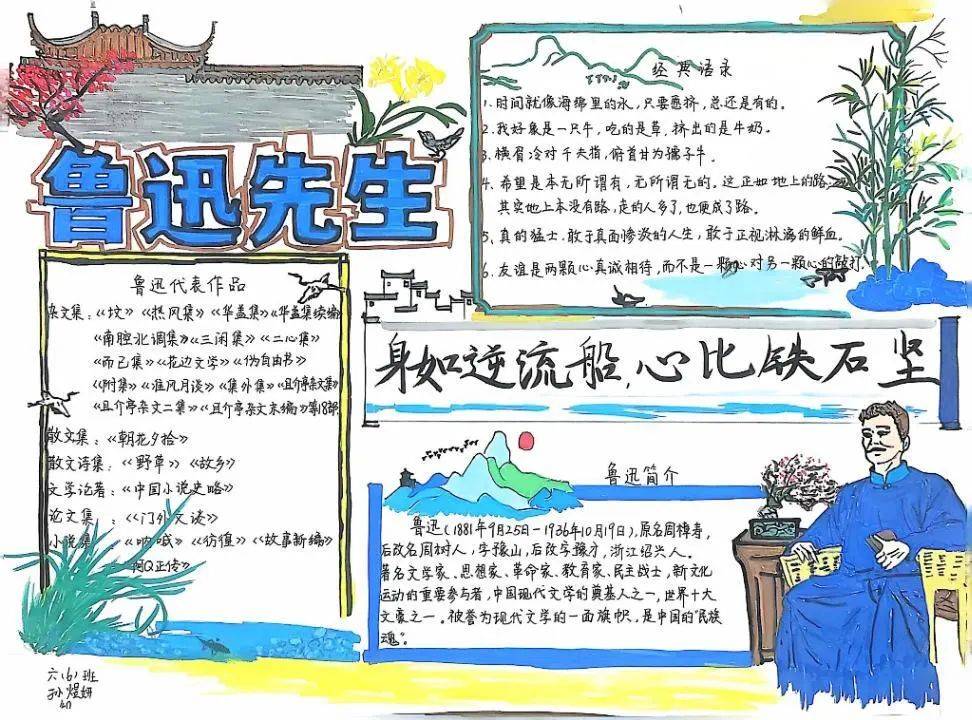 鲁迅先生
经典语录
1. 时间就像海绵里的水,只要愿挤,总还是有的。
2. 我好象是一只牛,吃的是草,挤出的是牛奶。
3. 横眉冷对千夫指,俯首甘为孺子牛。
4. 希望是本无所谓有,无所谓无的。这正如地上的路,
其实地上本没有路,走的人多了,也便成了路。
5. 真的猛士,敢于直面惨淡的人生,敢于正视淋漓的鲜血。
6. 友谊是两颗心真诚相待,而不是一颗心对另一颗心的敲打。
鲁迅代表作品
杂文集:《坟》《热风集》《华盖集》《华盖集续编》
《南腔北调集》《三闲集》《二心集》
《而已集》《花边文学》《伪自由书》
《附集》《准风月谈》《集外集》《且介亭杂文集》
《且介亭杂文二集》《且介亭杂文末编》等18部
散文集:《朝花夕拾》
散文诗集:《野草》《故乡》
文学论著:《中国小说史略》
论文集:《门外文谈》
小说集:《呐喊》《彷徨》《故事新编》
《阿Q正传》
身如逆流船,心比铁石坚
鲁迅简介
鲁迅(1881年9月25日-1936年10月19日),原名周樟寿,
后改名周树人,字豫山,后改字豫才,浙江绍兴人。
著名文学家、思想家、革命家、教育家、民主战士,新文化
运动的重要参与者,中国现代文学的奠基人之一,世界十大
文豪之一。被誉为现代文学的一面旗帜,是中国的"民族
魂"。
六(6)班
孙煜妍